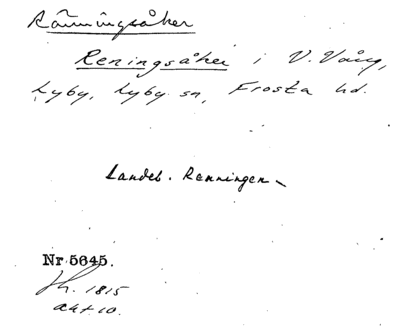 Ränningsåker
Reningsåker i V. Vång,
Lyby, Lyby sn, Frosta hd.
Landeb. Renningen
Nr 5645.
h. 1815
akt 10.